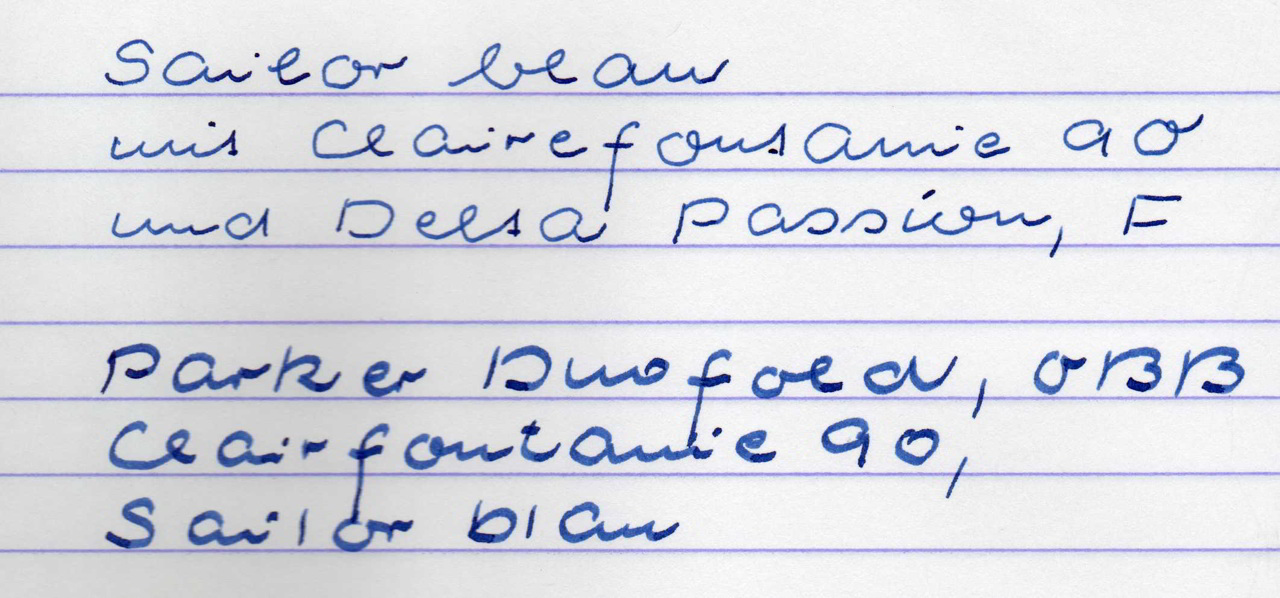 Sailor blau
mit Clairefontanie 90
und Delta Passion, F
Parker Duofold, OBB
Clairfontanie 90,
Sailor blau